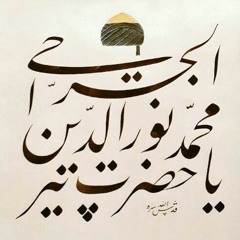 يا حضرت پير
محمّد نور الدّين
الجرّاحي
قدّس الله سره